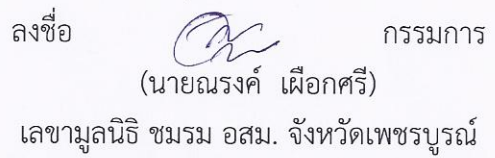 ลงชื่อ กรรมการ
(นายณรงค์ เผือกศรี)
เลขามูลนิธิ ชมรม อสม. จังหวัดเพชรบูรณ์